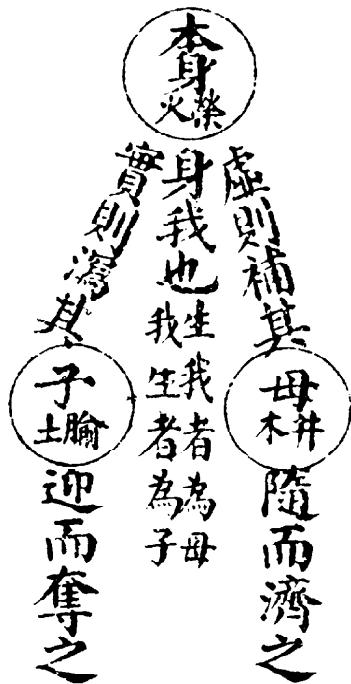 本身
榮火
虛則補其
母
井木
隨而濟之
身我也
生我者為母
我生者為子
實則瀉其
子
腧土
迎而奪之